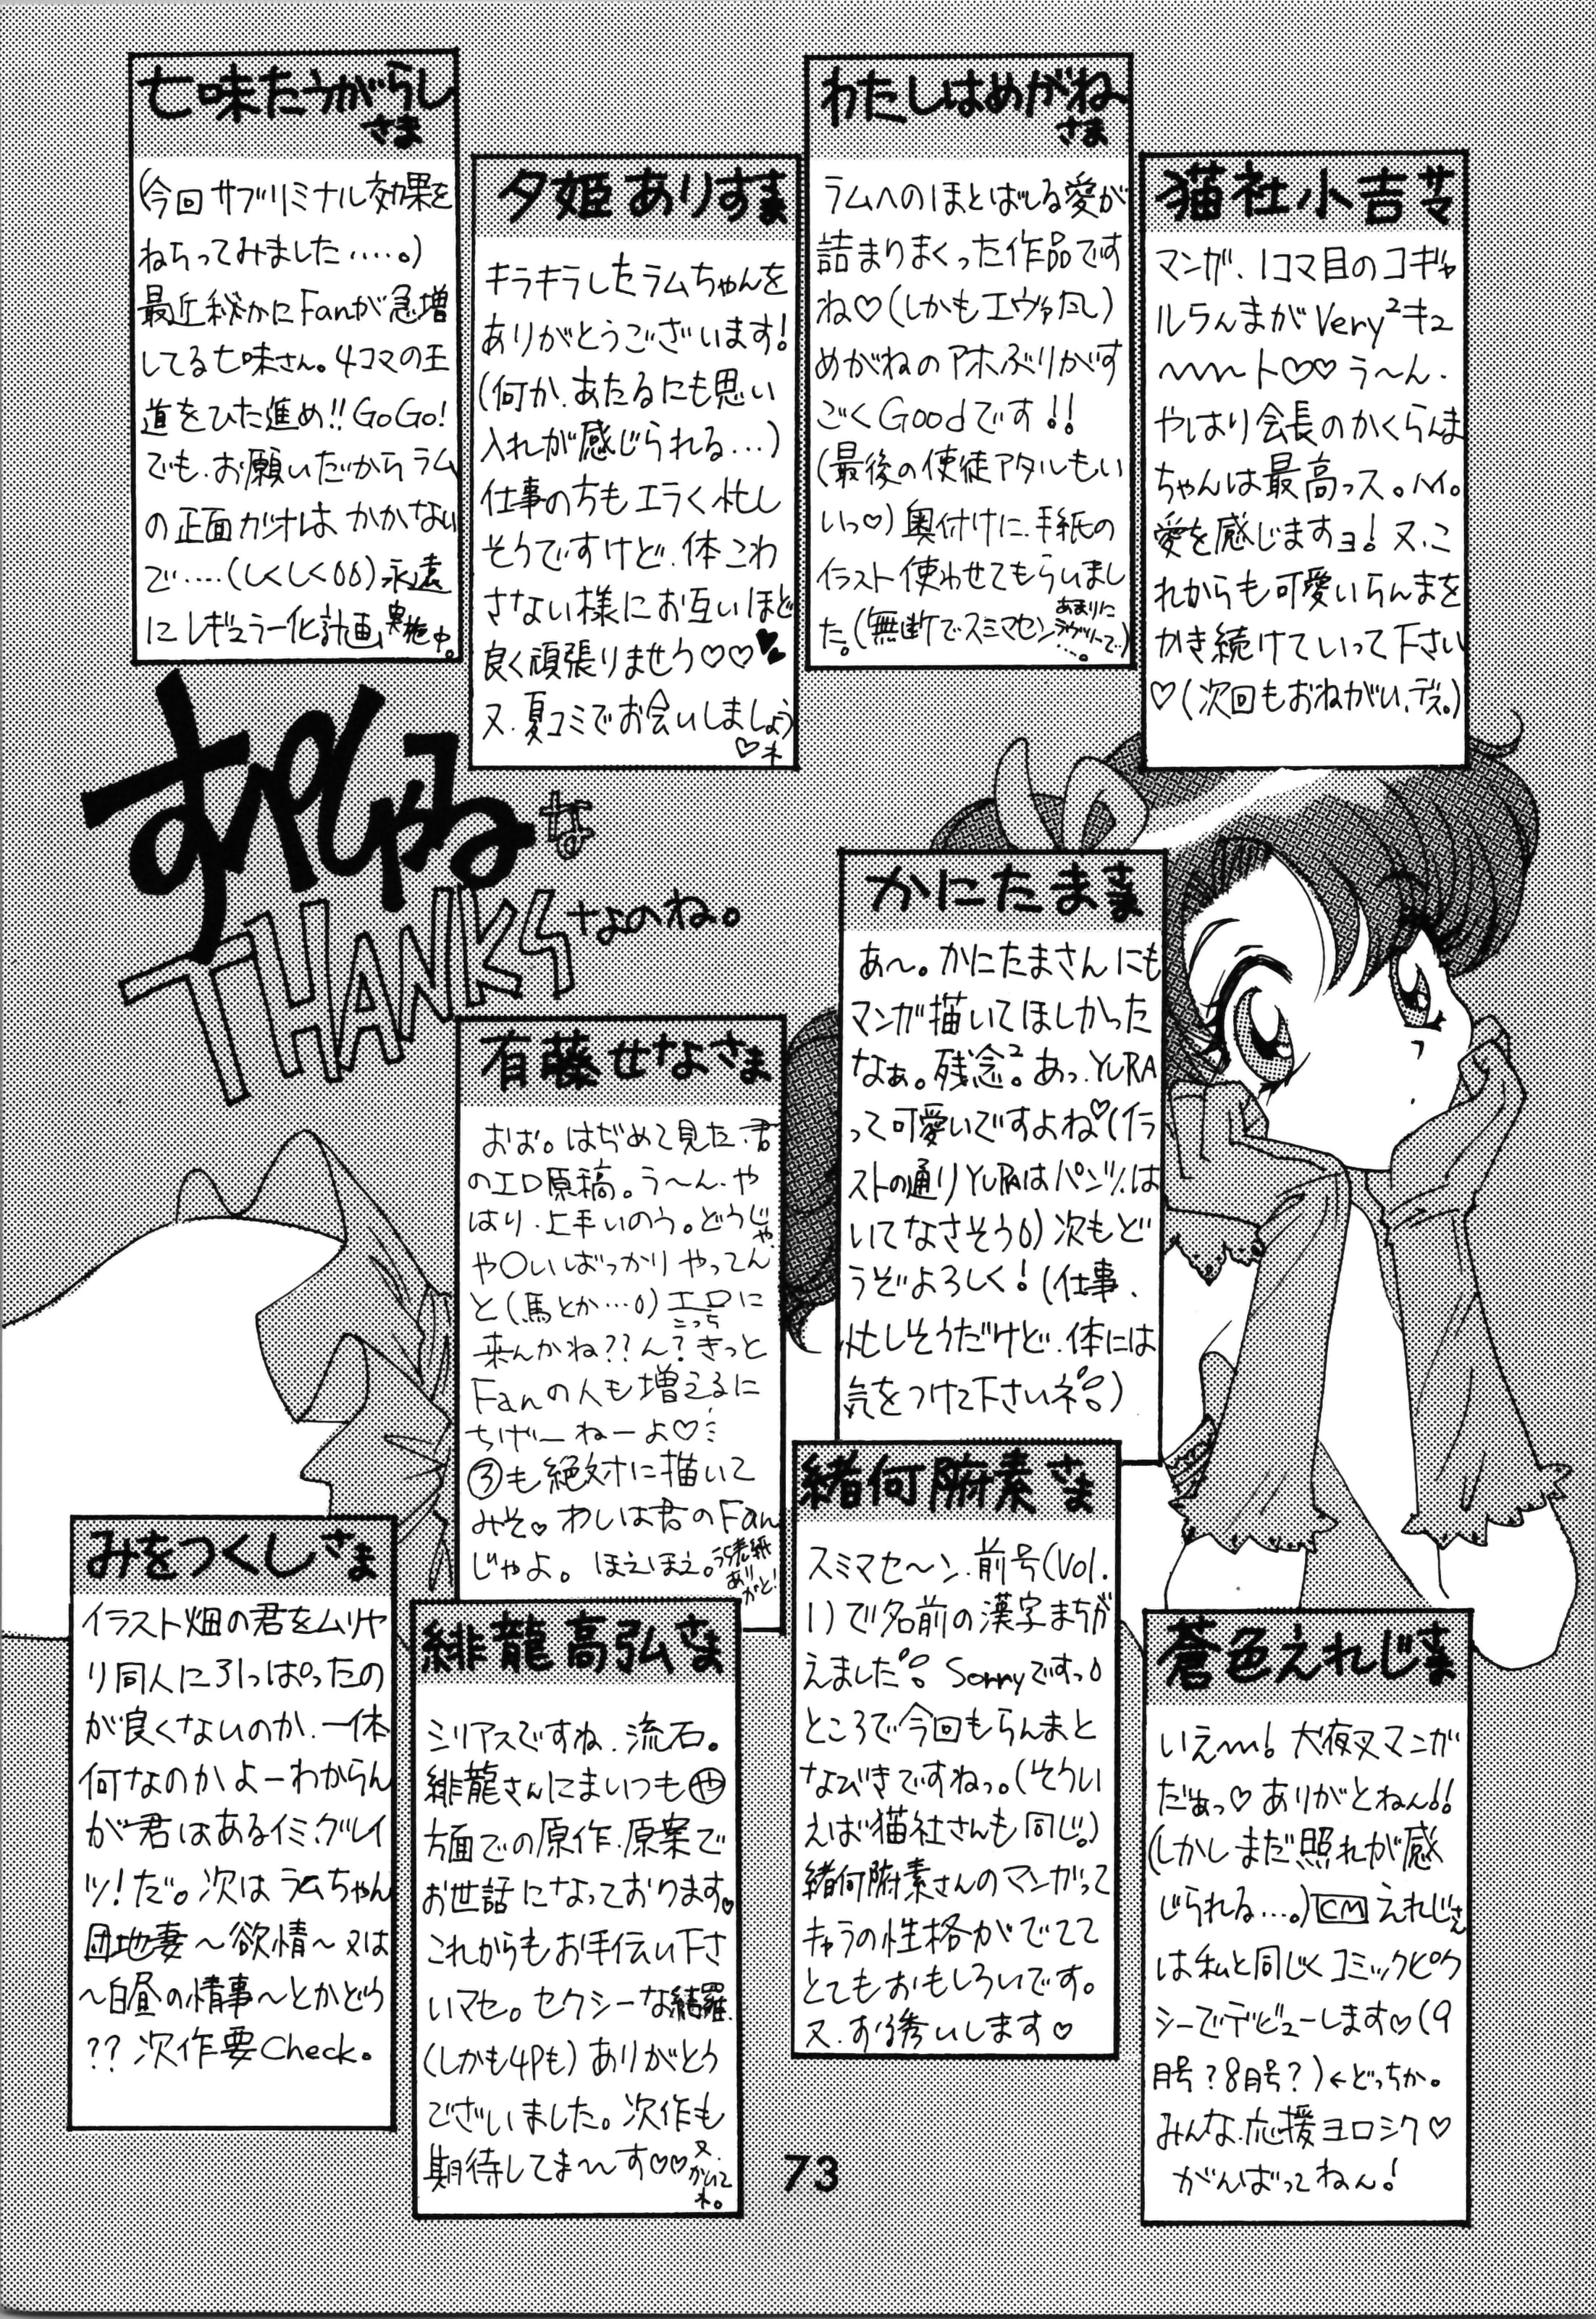 七味たうがらし
さま
(今回サブリミナル効果を
ねらってみました‥‥。)
最近秘かにFanが急増
してる七味さん。4コマの王
道をひた進め!!GoGo!
でも、お願いだからラム
の正面ガオはかかない
で‥‥(しくしく)永遠
にレギュラー化計画実施中。
夕姫ありすさま
キラキラしたラムちゃんを
ありがとうございます!
(何か、あたるにも思い
入れが感じられる…)
仕事の方もエラく忙し
そうですけど、体こわ
さない様にお互いほど
良く頑張りませう♡♡
又、夏コミでお会いしましょう
♡ネ
わたしはめがね
さま
ラムへのほとばしる愛が
詰まりまくった作品です
ね♡(しかもエヴァだし)
めがねのアホぶりがす
ごくGoodです!!
(最後の使徒アタルもい
いっ♡)奥付けに、手紙の
イラスト使わせてもらいまし
た。(無断でスミマセンあまりにラヴリーで‥‥。)
猫社小吉サマ
マンガ、1コマ目のコギャ
ルらんまがVery²キュ
〜〜〜ト♡♡う〜ん、
やはり会長のかくらんま
ちゃんは最高っス。ハイ。
愛を感じますヨ!又、こ
れからも可愛いらんまを
かき続けていって下さい
♡(次回もおねがい、デス。)
すぺしゃるな
THANKSなのね。
かにたまさま
あ〜。かにたまさんにも
マンガ描いてほしかった
なぁ。残念²。あっ、YURA
って可愛いですよね♡(イラ
ストの通りYURAはパンツ、は
いてなさそう)次もど
うぞよろしく!(仕事、
忙しそうだけど、体には
気をつけて下さいネ。)
有藤せなさま
おお。はぢめて見た、君
のエロ原稿。う〜ん、や
はり、上手いのう。どうじゃ、
や〇いばっかりやってん
と(馬とか…)エロに
こっち
来んかね??ん?きっと
Fanの人も増えるに
ちげーねーよ♡
③も絶対に描いて
みそ♡わしは君のFan
じゃよ。ほえほえ。うら表紙ありがと!
緒何腑素さま
スミマセ〜ン、前号(Vol.
1)で名前の漢字まちが
えました。Sorryですっ
ところで今回もらんまと
なびきですねっ。(そうい
えば猫社さんも同じ。)
緒何腑素さんのマンガって
キャラの性格がでてて
とてもおもしろいです。
又、お誘いします♡
みをつくしさま
イラスト畑の君をムリヤ
リ同人に引っぱったの
が良くないのか、一体
何なのかよーわからん
が君はあるイミ、グレイ
ツ!だ。次はラムちゃん
団地妻〜欲情〜又は
〜白昼の情事〜とかどう
??次作要Check。
緋龍高弘さま
シリアスですね、流石。
緋龍さんにまいつも㋳
方面での原作、原案で
お世話になっております。
これからもお手伝い下さ
いマセ。セクシーな綺羅、
(しかも4Pも)ありがとう
ございました。次作も
期待してま〜す♡♡又、かいてネ。
蒼色えれじさま
いえ〜〜!犬夜叉マンガ
だぁっ♡ありがとねん!!
(しかしまだ照れが感
じられる…。)CMえれじさん
は私と同じくコミックピク
シーでデビューします♡(9
月号?8月号?)←どっちか。
みんな、応援ヨロシク♡
がんばってねん!
73